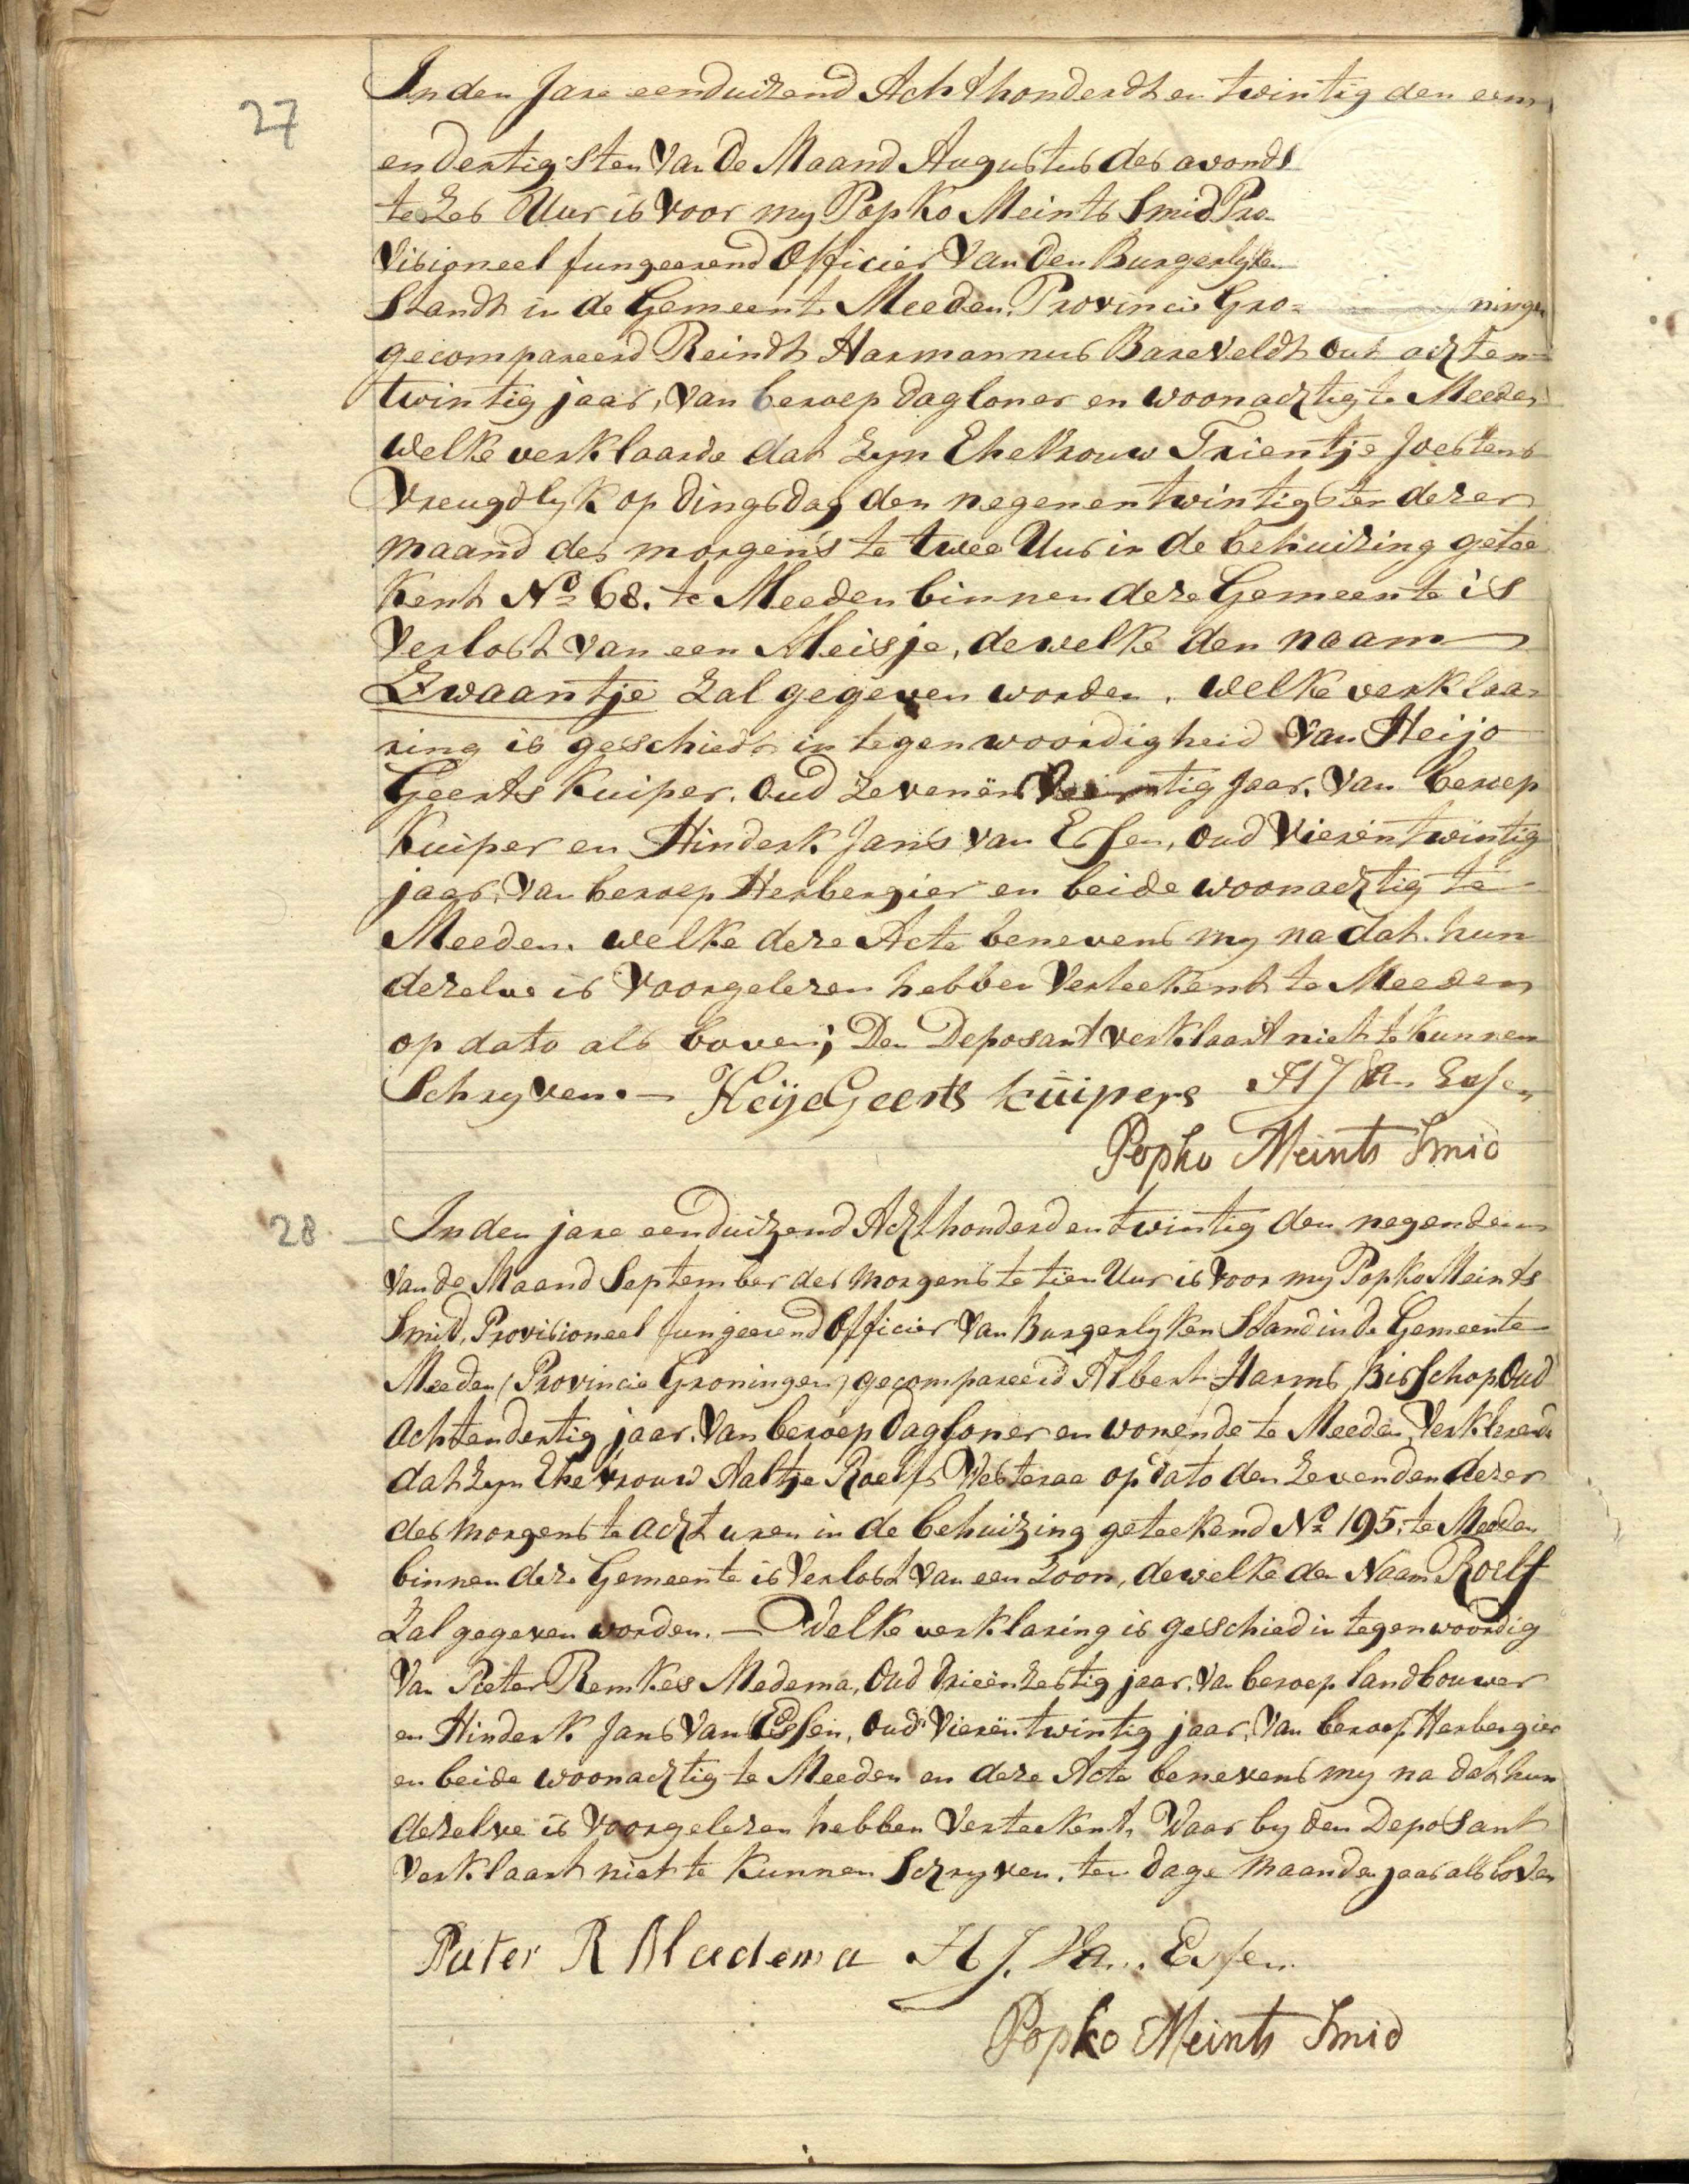 27
In den Jare eenduizend Achthonderdt en twintig den een
en dertigsten Van de Maand Augustus des avonds
te Zes Uur is voor my Popko Meints Smid Pro-
visioneel fungeerend Officier Van den Burgerlyken
Standt in de Gemeente Meeden, Provincie Gro= ningen
gecompareerd Reindt Harmannus Bareveldt out achten-
twintig jaar, van beroep dagloner en woonachtig te Meeden
welke verklaarde dat Zyn Ehevrouw Trientje Joestens
Vreugdlyk op dingsdag den negenentwintigsten dezer
maand des morgens te twee Uur in de behuizing getee
kent No 68. te Meeden binnen deze Gemeente is
Verlost van een Meisje, dewelke den naam
Zwaantje Zal gegeven worden. Welke verklaa-
ring is geschiedt in tegenwoordigheid Van Heijo
Geerts Kuiper. Oud zevenën tig Jaar. Van beroep
Kuiper en Hinderk Jans van Essen, oud Vierëntwintig
jaar, Van beroep Herbergier en beide woonachtig te
Meeden. welke deze Acte benevens my na dat hun
dezelve is Voorgelezen hebben Verteekent te Meeden
op dato als boven; Den Deposant verklaart niet te kunnen
Schryven. — Heije Geerts küipers H J Van Essen
Popko Meints Smid
28
In den jare eenduizend Achthonderd en twintig den negenden
Van de Maand September des morgens te tien Uur is voor my Popko Meints
Smid, Provisioneel fungeerend Officier Van Burgerlyken Stand in de Gemeente
Meeden (Provincie Groningen) gecompareerd Albert Harms Bisschop Oud
achtendertig jaar. Van beroep Dagloner en wonende te Meeden, Verklerende
dat Zyn Ehevrouw Aaltje Roelfs Westeree op dato den Zevenden dezer
des morgens te acht uren in de behuizing geteekend No 195. te Meeden
binnen deze Gemeente is Verlost Van een Zoon, dewelke de Naam Roelf
Zal gegeven worden. — Welke verklaring is geschied in tegenwoordig
Van Pieter Remkes Medema, Oud drieënzestig jaar, Van beroep landbouwer
en Hinderk Jans Van Essen, Oud Vierëntwintig jaar, Van beroep Herbergier
en beide woonachtig te Meeden en deze Acte benevens my na dat hun
dezelve is Voorgelezen hebben Verteekent, Waar by den Deposant
Verklaart niet te kunnen Schryven. ten dage Maand en jaar als boven
Pieter R Madema H J. Van Essen
Popko Meints Smid